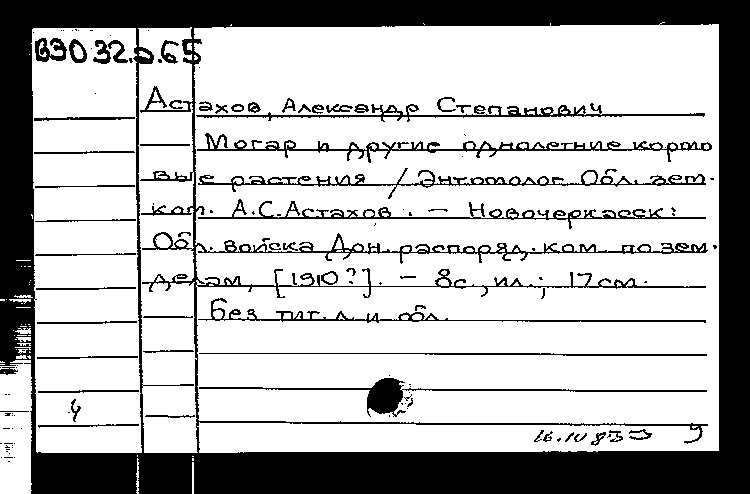 В90 32.5.65
Астахов, Александр Степанович
Могар и другие однолетние кормо
вые растения / Энтомолог Обл. зем.
ком. А.С.Астахов. — Новочеркасск:
Обл. войска Дон. распоряд. ком. по зем.
делам, [1910?]. — 8с., ил.; 17см.
Без тит. л. и обл.